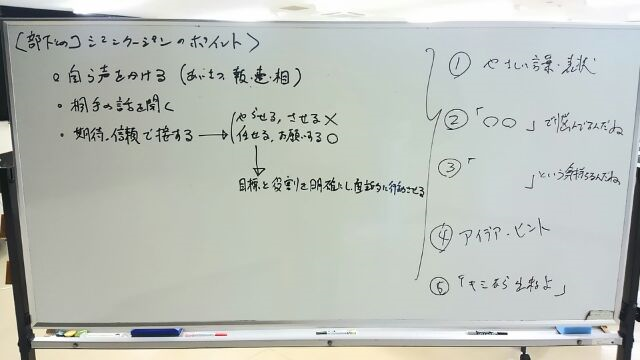 [部下との]コミュニケーションのポイント>
○ 自ら声をかける (あいさつ 報・連・相)
・ 相手の話を聞く
・ 期待、信頼で接する → やらせる, させる ×
任せる, お願いする ○
目標と役割を明確にし、自発的に行動させる
① やさしい言葉・表情
② 「○○」で悩んでるんだね
③ 「 」という気持ちなんだね
④ アイデア・ヒント
⑤ 「キミなら出来るよ」